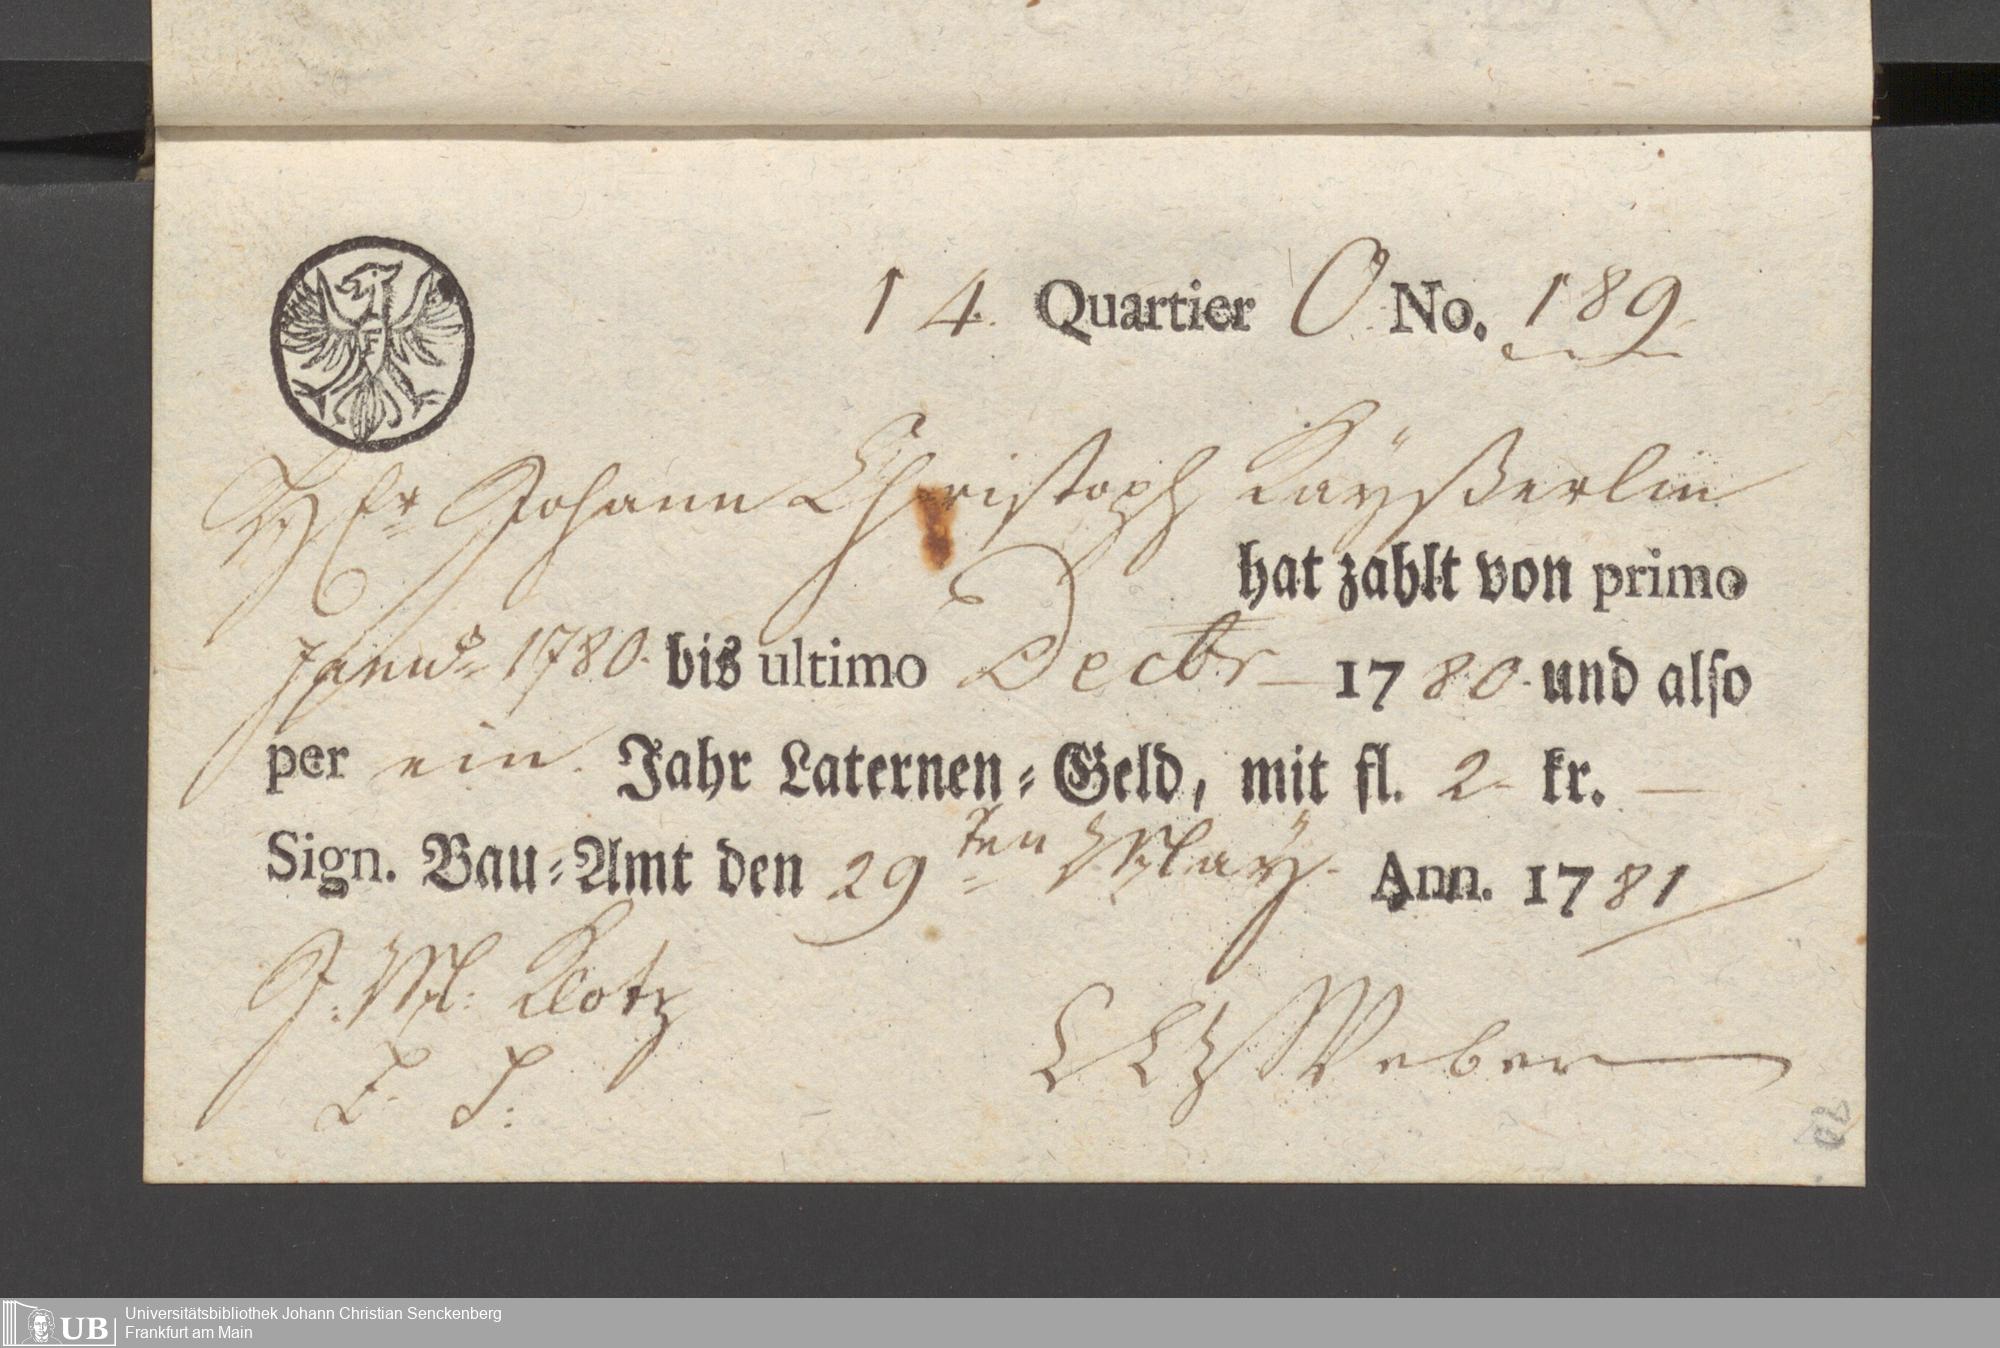 14. Quartier O No. 189.
Hr Johann Christoph Kayßerlin
hat zahlt von primo
Janu 1780. bis ultimo Decbr 1780. und also
per ein Jahr Laternen-Geld, mit fl. 2. kr. —
Sign. Bau-Amt den 29ten May. Ann. 1781
J. M: Klotz
Weber
F
UB
Universitätsbibliothek Johann Christian Senckenberg
Frankfurt am Main